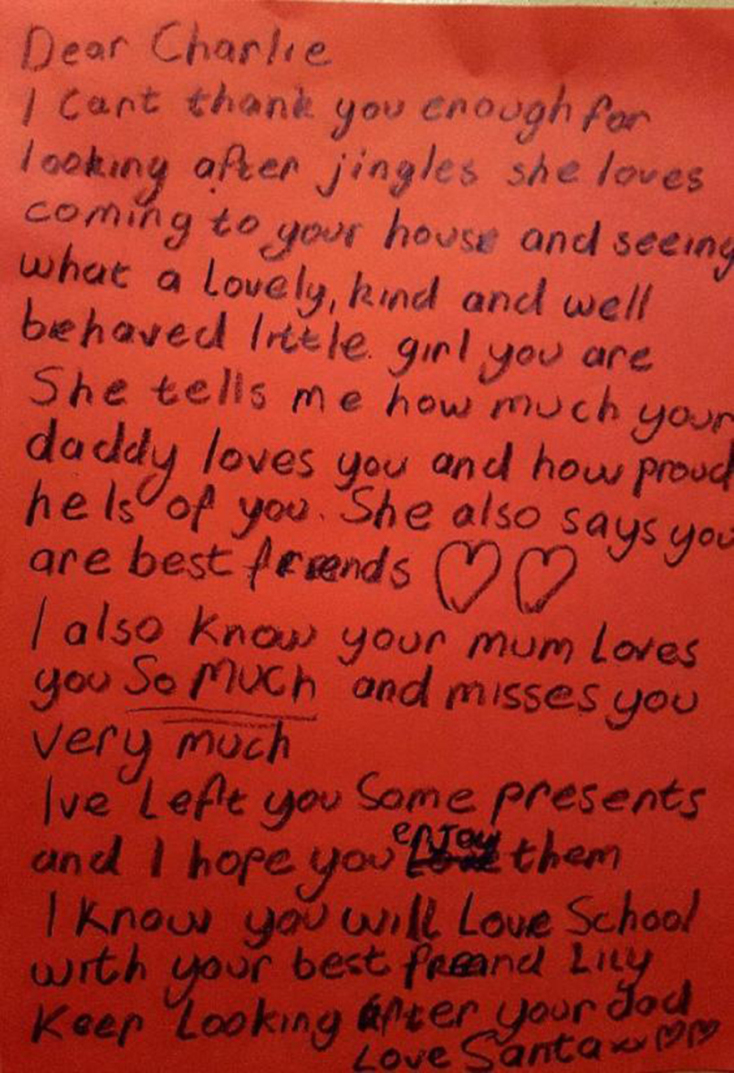 Dear Charlie
I Cant thank you enough for
looking after jingles she loves
coming to your house and seeing
what a Lovely, kind and well
behaved little girl you are
She tells me how much your
daddy loves you and how proud
he Is of you. She also says you
are best friends ♡♡
I also know your mum Loves
you So Much and misses you
very much
Ive Left you Some presents
and I hope you enjoy them
I Know you will Love School
with your best friend Lily
Keep Looking After your dad
Love Santa xx ♡♡